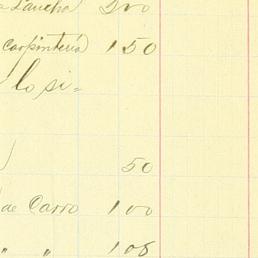 a Lancha 200
carpintería 150
lo si=
50
de Carro 100
" " 108